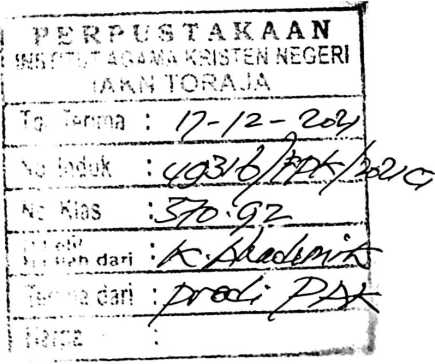 PERPUSTAKAAN
INSTITUT AGAMA KRISTEN NEGERI
IAKN TORAJA
Tgl Terima : 17-12-2021
No Induk : 49316/PAK/2021
No Klas : 370.92
dari : K. Akademik
Terima dari : prodi PAK
Harga :